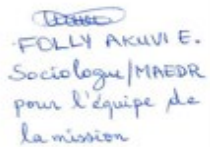 FOLLY AKUVI E.
Sociologue/MAEDR
pour l'équipe de
la mission